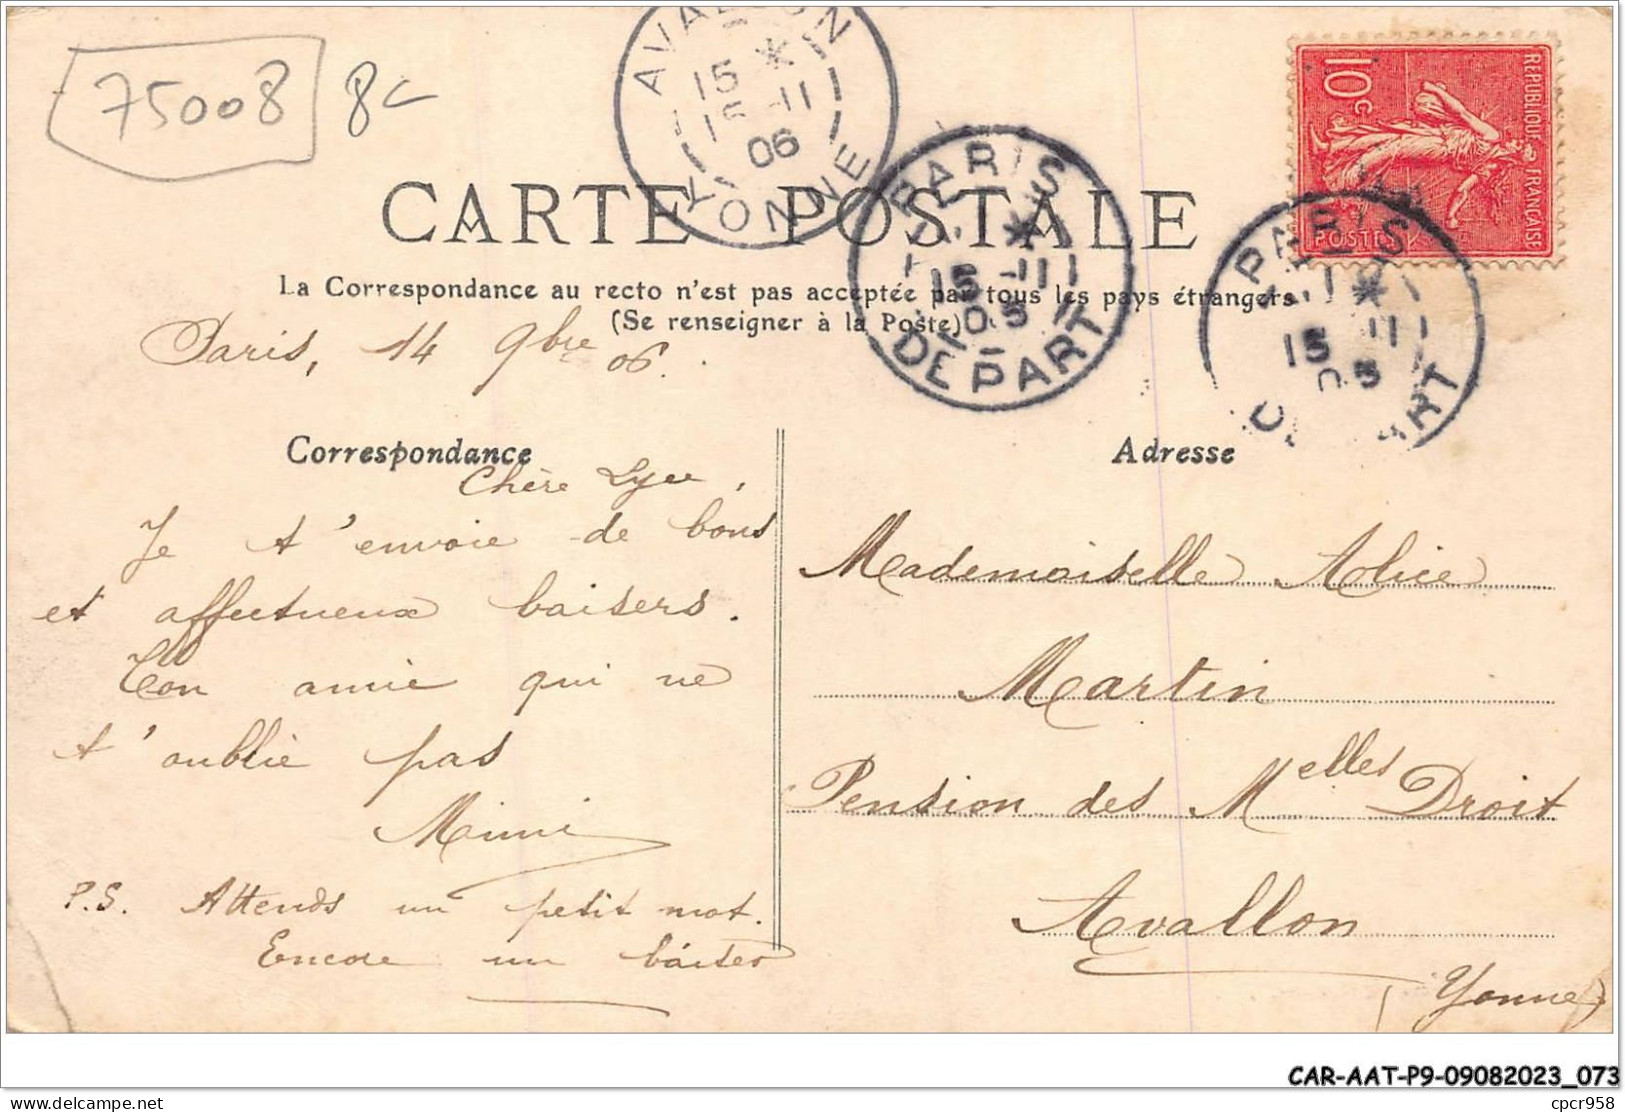 75008 8c
AVALLON
15 * 15 -11 06
YONNE
PARIS
* 15 -11 05
DEPART
PARIS
* 15 -11 05
DEPART
10c
REPUBLIQUE FRANÇAISE
POSTES
CARTE POSTALE
La Correspondance au recto n'est pas acceptée par tous les pays étrangers
(Se renseigner à la Poste)
Paris, 14 9bre 06.
Correspondance
Chère
Je t'envoie de bons
et affectueux baisers.
Ton amie qui ne
t'oublie pas
Mimi
P.S. Attends un petit mot.
Encore un baiser
Adresse
Mademoiselle Alice
Martin
Pension des Melles Droit
Avallon
(Yonne)
CAR-AAT-P9-09082023_073
delcampe.net
cpcr958